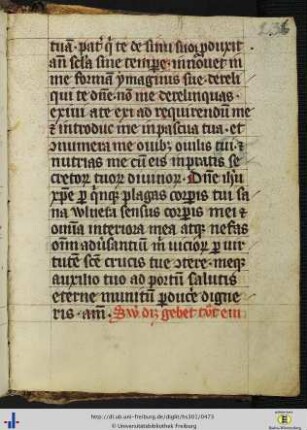 tuā. pat̄ q̄ te de sinu suo ꝓduxit
an̄ scl̄a sine tempe. inouet in
me formā ymaginis sue. dereli
qui te dn̄e. nō me derelinquas.
exiui a te exi ad requirendū me
⁊ introduc me in pascua tua. et
ꝯnumera me ouibꝫ ouilis tui. ⁊
nutrias me cū eis in pratis se
cretoꝝ tuoꝝ diuinoꝝ. Dn̄e ih̄u
xp̄e ꝑ qͥnqꝫ plagas corꝑis tui sa
na wlnera sensus corꝑis mei ⁊
om̄ia interiora mea atqꝫ nefas
om̄ aduersantiū m̄ uicioꝝ ꝑ uir
tutē sc̄e crucis tue ꝯtere. meqꝫ
auxilio tuo ad portū salutis
eterne munitū ꝑduce digne
ris. am̄. diz gebet
http://dl.ub.uni-freiburg.de/diglit/hs301/0473
© Universitätsbibliothek Freiburg